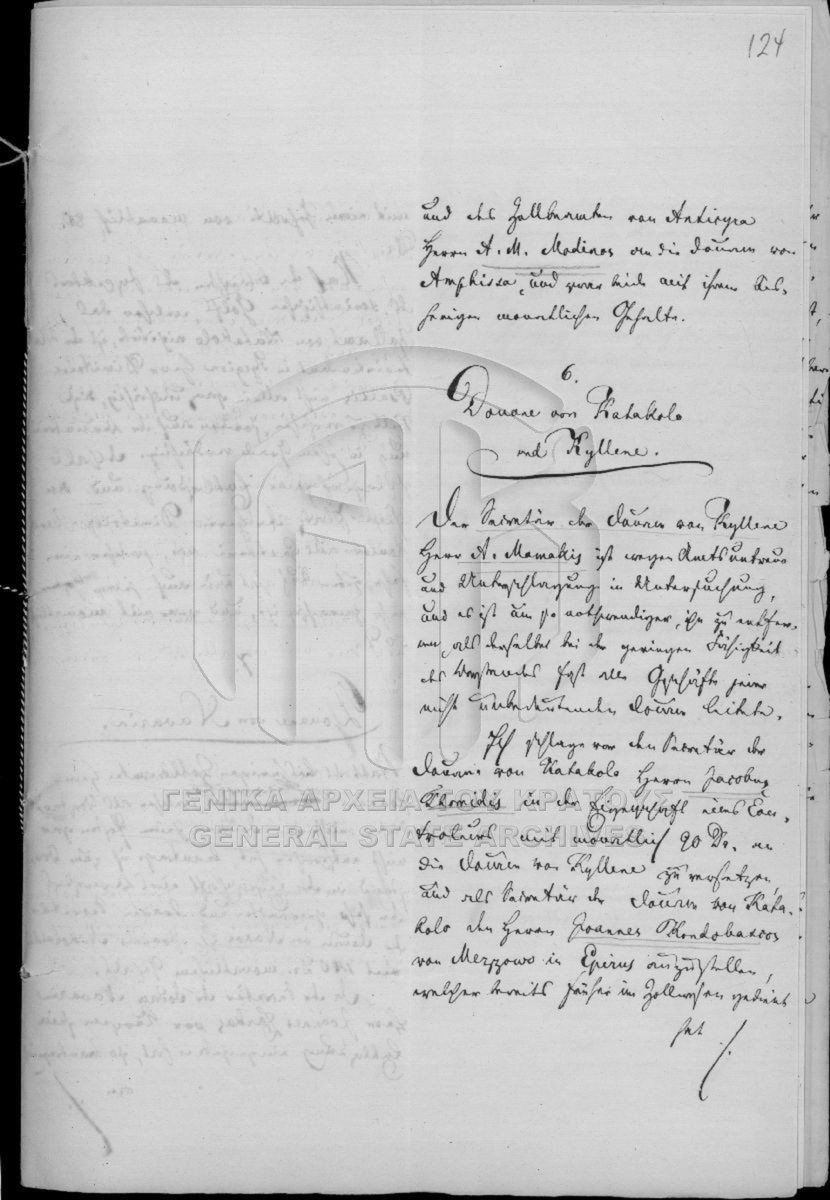 124
und des Zollbeamten von Anticyra
Herrn A. M. Modinos an die Douane von
Amphissa, und zwar beide mit ihrem bis-
herigen monatlichen Gehalte.
6.
Douane von Katakolo
und Kyllene.
Der Secretär der Douane von Kyllene
Herr A. Mamakis ist wegen Amtsuntreue
und Unterschlagung in Untersuchung,
und es ist um so nothwendiger, ihn zu entfer-
nen, als derselbe bei der geringen Fähigkeit
des Vorstandes fast alle Geschäfte jener
nicht unbedeutenden Douane leitete.
Ich schlage vor den Secretär der
Douane von Katakolo Herrn Jacobus
in der Eigenschaft eines Con-
troleurs mit monatlich 90 Dr. an
die Douane von Kyllene zu versetzen,
und als Secretär der Douane von Kata-
kolo den Herrn Joannes Kondobazos
von Mezzowo in Epirus anzustellen,
welcher bereits früher im Zollwesen gedient
hat ./.
ΓΕΝΙΚΑ ΑΡΧΕΙΑ ΤΟΥ ΚΡΑΤΟΥΣ
GENERAL STATE ARCHIVES